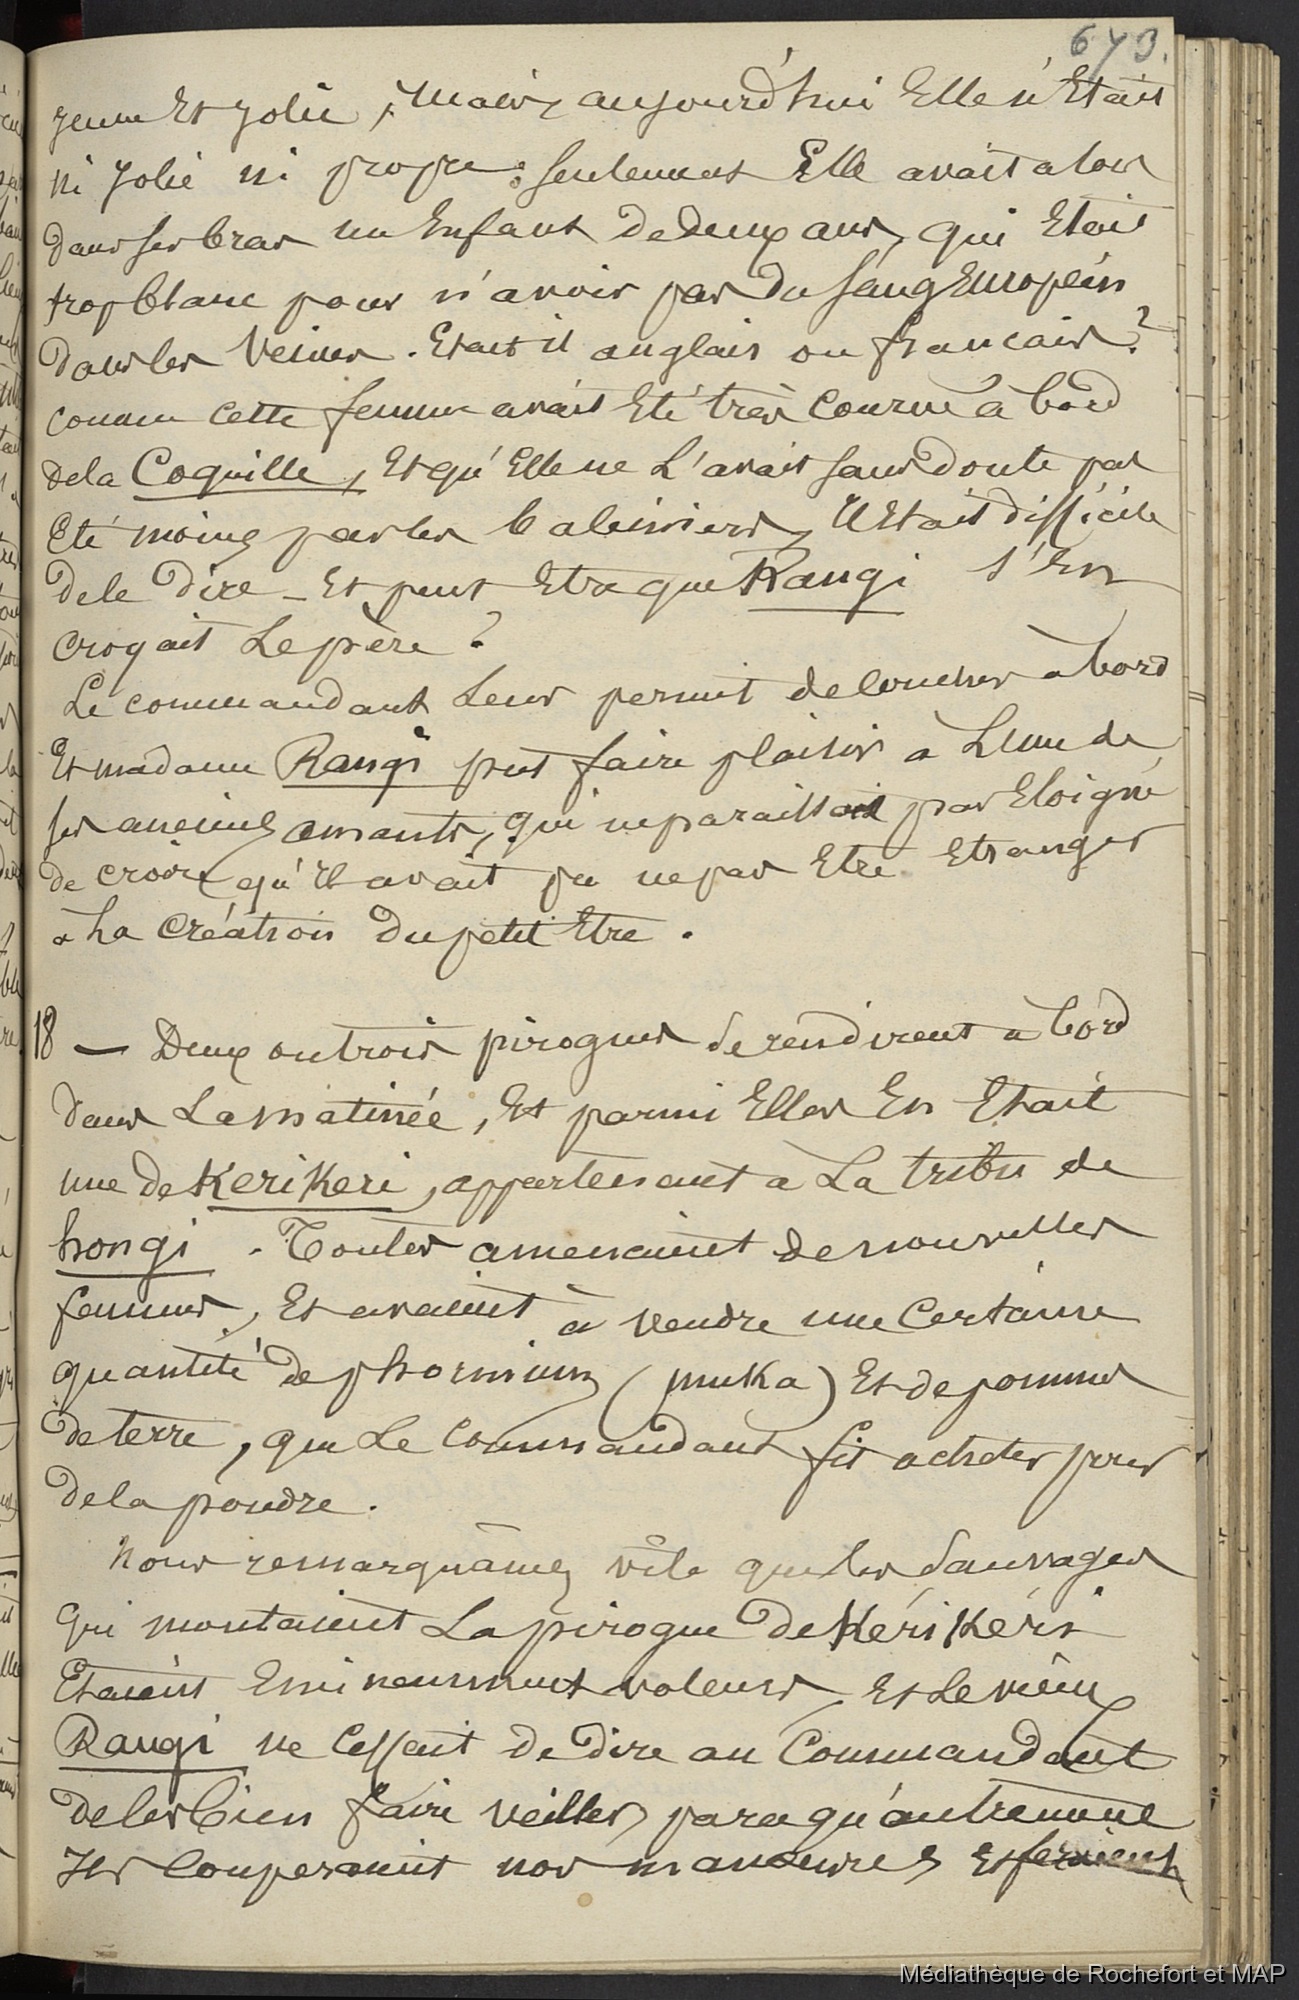 673.
jeune Et jolie ; Mais, aujourd'hui Elle n'Etait
ni jolie ni propre : seulement Elle avait alors
dans ses bras un Enfant de deux ans, qui Etait
trop blanc pour n'avoir pas du sang Européen
dans les veines. Etait il anglais ou francais ?
comme cette femme avait Eté très courue à bord
de la Coquille, Et qu'Elle ne L'avait sans doute pas
Eté moins par les baleiniers, Il Etait difficile
de le dire _ Et peut Etre que Rangi s'En
croyait Le père ?
Le commandant Leur permit de coucher à bord
Et madame Rangi put faire plaisir à L'un de
ses anciens amants, qui ne paraissait pas Eloigné
de croire qu'Il avait pu ne pas Etre Etranger
à La Création du petit Etre.
18 — Deux ou trois pirogues se rendirent à bord
dans La matinée, Et parmi Elles En Etait
une de KeriKeri, appartenant à La tribu de
hongi. Toutes amenaient de nouvelles
femmes, Et avaient à vendre une Certaine
quantité de phormium (muKa) Et de pommes
de terre, que Le Commandant fit acheter pour
de la poudre.
Nous remarquâmes vite que les Sauvages
qui montaient La pirogue de KériKéri
Etaient Eminemment voleurs, Et Le vieux
Rangi ne Cessait de dire au Commandant
de les bien faire veiller, parce qu'autrement
Ils Couperaient nos manœuvres Et feraient
Médiathèque de Rochefort et MAP